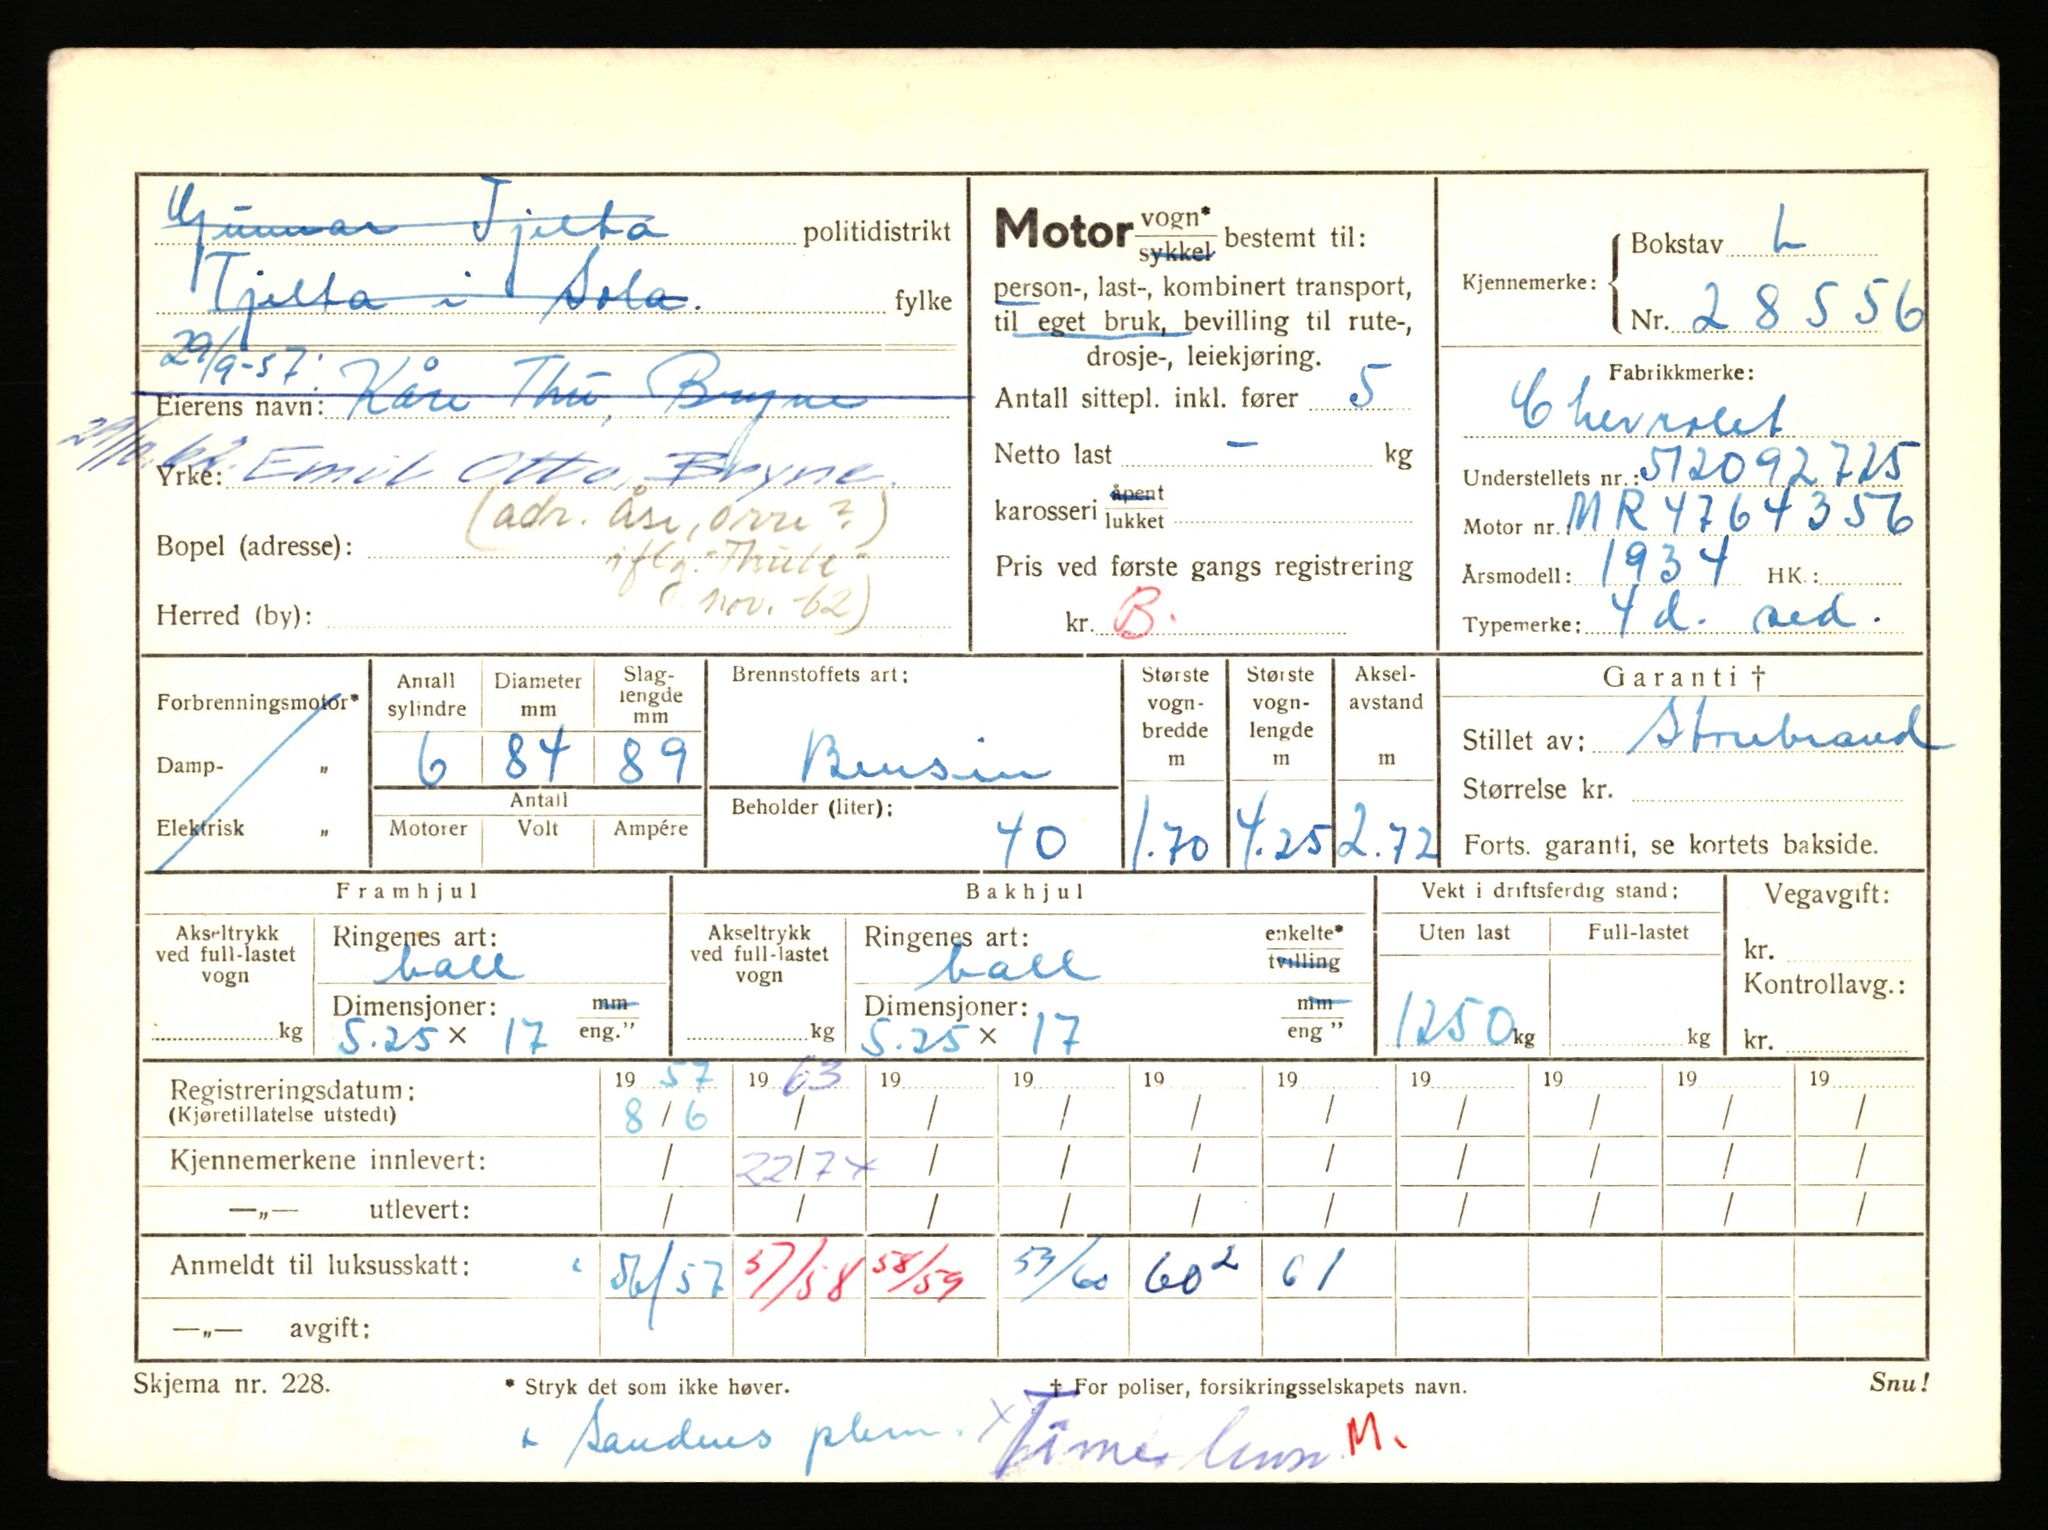 Gunnar Tjelta politidistrikt
Tjelta i Sola. fylke
29/9-57:
Eierens navn: Kåre Thu, Bryne
Yrke: Emil Otto, Bryne.
(adr. Åse, Orre?
Bopel (adresse): iflg. "Thule"
Herred (by): nov. -62)
Motor vogn* sykkel bestemt til:
person-, last-, kombinert transport,
til eget bruk, bevilling til rute-,
drosje-, leiekjøring.
Antall sittepl. inkl. fører 5
Netto last – kg
karosseri åpent lukket
Pris ved første gangs registrering
kr. B.
Kjennemerke: Bokstav L
Nr. 28556
Fabrikkmerke:
Chevrolet
Understellets nr.: 512092725
Motor nr. MR4764356
Årsmodell: 1934 HK.:
Typemerke: 4 d. sed.
Forbrenningsmotor*
Damp- „
Elektrisk „
Antall sylindre 6
Diameter mm 84
Slag-lengde mm 89
Antall
Motorer Volt Ampére
Brennstoffets art:
Bensin
Beholder (liter):
40
Største vogn-bredde m 1.70
Største vogn-lengde m 4.25
Aksel-avstand m 2.72
Garanti †
Stillet av: Storebrand
Størrelse kr.
Forts. garanti, se kortets bakside.
Framhjul
Akseltrykk ved full-lastet vogn kg
Ringenes art:
ball
Dimensjoner: mm eng."
5.25 x 17
Bakhjul
Akseltrykk ved full-lastet vogn kg
Ringenes art: enkelte* tvilling
ball
Dimensjoner: mm eng "
5.25 x 17
Vekt i driftsferdig stand;
Uten last Full-lastet
1250 kg kg
Vegavgift:
kr.
Kontrollavg.:
kr.
19 57 19 63 19 19 19 19 19 19 19 19
Registreringsdatum:
(Kjøretillatelse utstedt) 8/6 / / / / / / / / /
Kjennemerkene innlevert: / 22/7 x / / / / / / / /
—„— utlevert: / / / / / / / / / /
Anmeldt til luksusskatt: 56/57 57/58 58/59 59/60 60² 61
—„— avgift:
Skjema nr. 228. * Stryk det som ikke høver. † For poliser, forsikringsselskapets navn. Snu!
Sandnes x Time M.